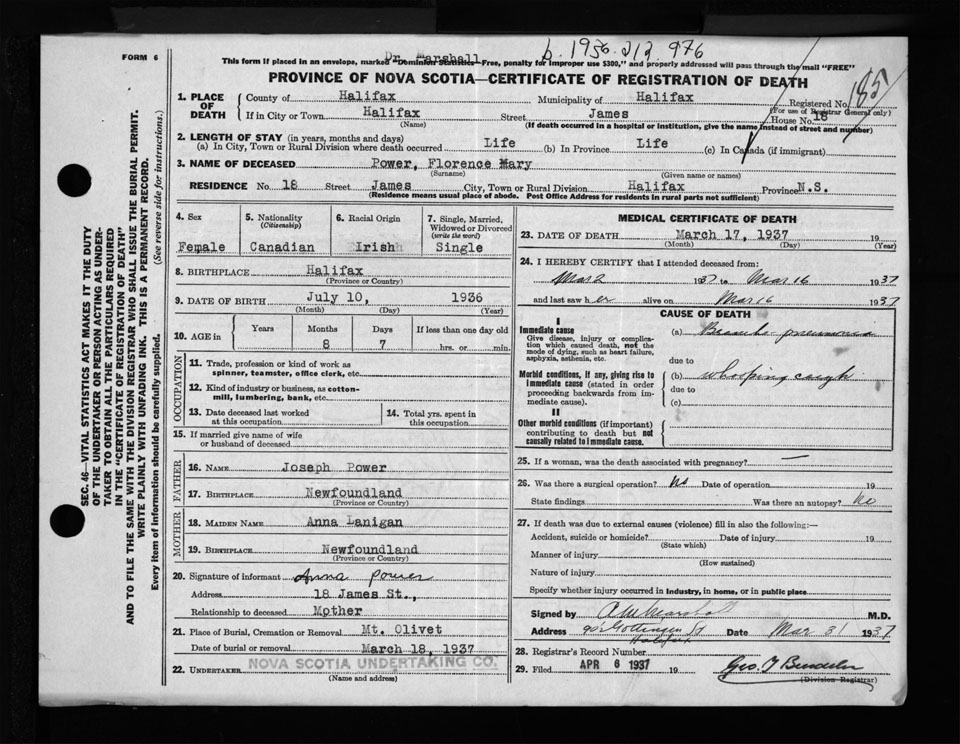 FORM 6
Dr. Marshall
b. 1936. 212 976
This form if placed in an envelope, marked "Dominion Statistics—Free, penalty for improper use $300," and properly addressed will pass through the mail "FREE"
PROVINCE OF NOVA SCOTIA—CERTIFICATE OF REGISTRATION OF DEATH
185
1. PLACE OF DEATH
County of Halifax Municipality of Halifax Registered No.
(For use of Registrar General only)
If in City or Town Halifax Street James House No. 18
(Name) (If death occurred in a hospital or institution, give the name instead of street and number)
2. LENGTH OF STAY (in years, months and days)
(a) In City, Town or Rural Division where death occurred Life (b) In Province Life (c) In Canada (if immigrant)
3. NAME OF DECEASED Power, Florence Mary
(Surname) (Given name or names)
RESIDENCE No. 18 Street James City, Town or Rural Division Halifax Province N.S.
(Residence means usual place of abode. Post Office Address for residents in rural parts not sufficient)
4. Sex
Female
5. Nationality
(Citizenship)
Canadian
6. Racial Origin
Irish
7. Single, Married, Widowed or Divorced
(write the word)
Single
8. BIRTHPLACE Halifax
(Province or Country)
9. DATE OF BIRTH July 10, 1936
(Month) (Day) (Year)
10. AGE in
Years Months Days If less than one day old
8 7 hrs. or min.
OCCUPATION
11. Trade, profession or kind of work as
spinner, teamster, office clerk, etc.
12. Kind of industry or business, as cotton-
mill, lumbering, bank, etc.
13. Date deceased last worked
at this occupation
14. Total yrs. spent in
this occupation
15. If married give name of wife
or husband of deceased
FATHER
16. NAME Joseph Power
17. BIRTHPLACE Newfoundland
(Province or Country)
MOTHER
18. MAIDEN NAME Anna Lanigan
19. BIRTHPLACE Newfoundland
(Province or Country)
20. Signature of informant Anna Power
Address 18 James St.,
Relationship to deceased Mother
21. Place of Burial, Cremation or Removal Mt. Olivet
Date of burial or removal March 18, 1937
22. UNDERTAKER NOVA SCOTIA UNDERTAKING CO.
(Name and address)
MEDICAL CERTIFICATE OF DEATH
23. DATE OF DEATH March 17, 1937 19
(Month) (Day) (Year)
24. I HEREBY CERTIFY that I attended deceased from:
Mar 2 1937 to Mar 16 1937
and last saw her alive on Mar 16 1937
CAUSE OF DEATH
I
Immediate cause
Give disease, injury or complica-
tion which caused death, not the
mode of dying, such as heart failure,
asphyxia, asthenia, etc.
(a) Broncho pneumonia
due to
Morbid conditions, if any, giving rise to
immediate cause (stated in order
proceeding backwards from im-
mediate cause).
(b) whooping cough
due to
(c)
II
Other morbid conditions (if important)
contributing to death but not
causally related to immediate cause.
25. If a woman, was the death associated with pregnancy? —
26. Was there a surgical operation? No Date of operation 19
State findings Was there an autopsy? No
27. If death was due to external causes (violence) fill in also the following:—
Accident, suicide or homicide? Date of injury 19
(State which)
Manner of injury
(How sustained)
Nature of injury
Specify whether injury occurred in industry, in home, or in public place
Signed by A M Marshall M.D.
Address Gottingen St Halifax Date Mar 31 1937
28. Registrar's Record Number
29. Filed APR 6 1937 19
(Division Registrar)
SEC. 46—VITAL STATISTICS ACT MAKES IT THE DUTY
OF THE UNDERTAKER OR PERSON ACTING AS UNDER-
TAKER TO OBTAIN ALL THE PARTICULARS REQUIRED
IN THE "CERTIFICATE OF REGISTRATION OF DEATH"
AND TO FILE THE SAME WITH THE DIVISION REGISTRAR WHO SHALL ISSUE THE BURIAL PERMIT.
WRITE PLAINLY WITH UNFADING INK. THIS IS A PERMANENT RECORD.
Every item of Information should be carefully supplied. (See reverse side for instructions.)